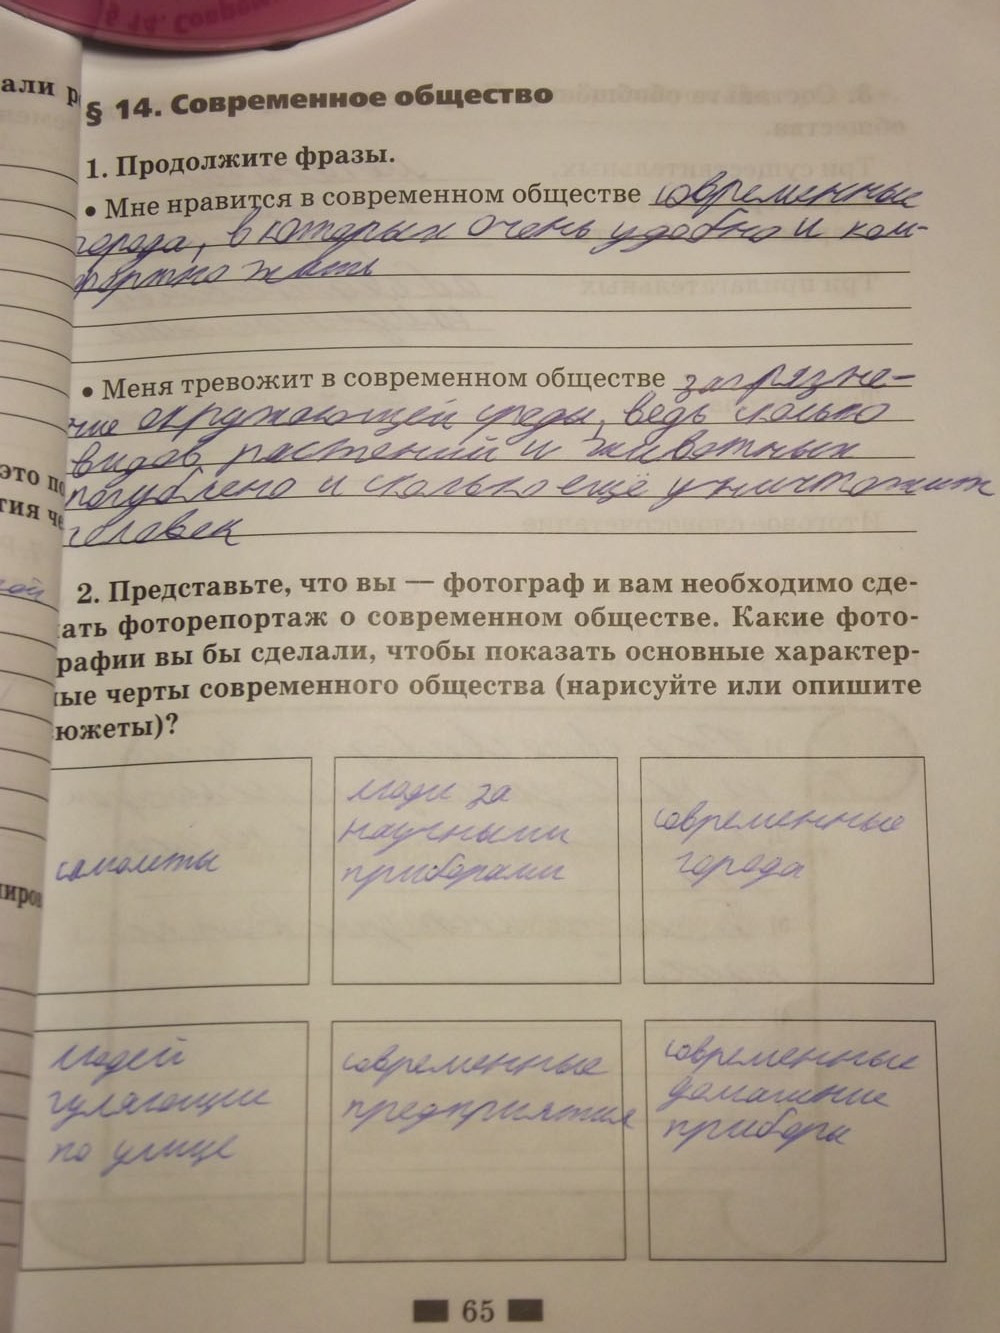 али р
§ 14. Современное общество
1. Продолжите фразы.
• Мне нравится в современном обществе современные
города, в которых очень удобно и ком-
фортно жить
• Меня тревожит в современном обществе загрязне-
ние окружающей среды, ведь сколько
видов растений и животных
погублено и сколько ещё уничтожит
человек
это по
тия че
ой
2. Представьте, что вы — фотограф и вам необходимо сде-
лать фоторепортаж о современном обществе. Какие фото-
графии вы бы сделали, чтобы показать основные характер-
ные черты современного общества (нарисуйте или опишите
сюжеты)?
иров
самолеты
люди за
научными
приборами
современные
города
людей
гуляющие
по улице
современные
предприятия
современные
домашние
приборы
65